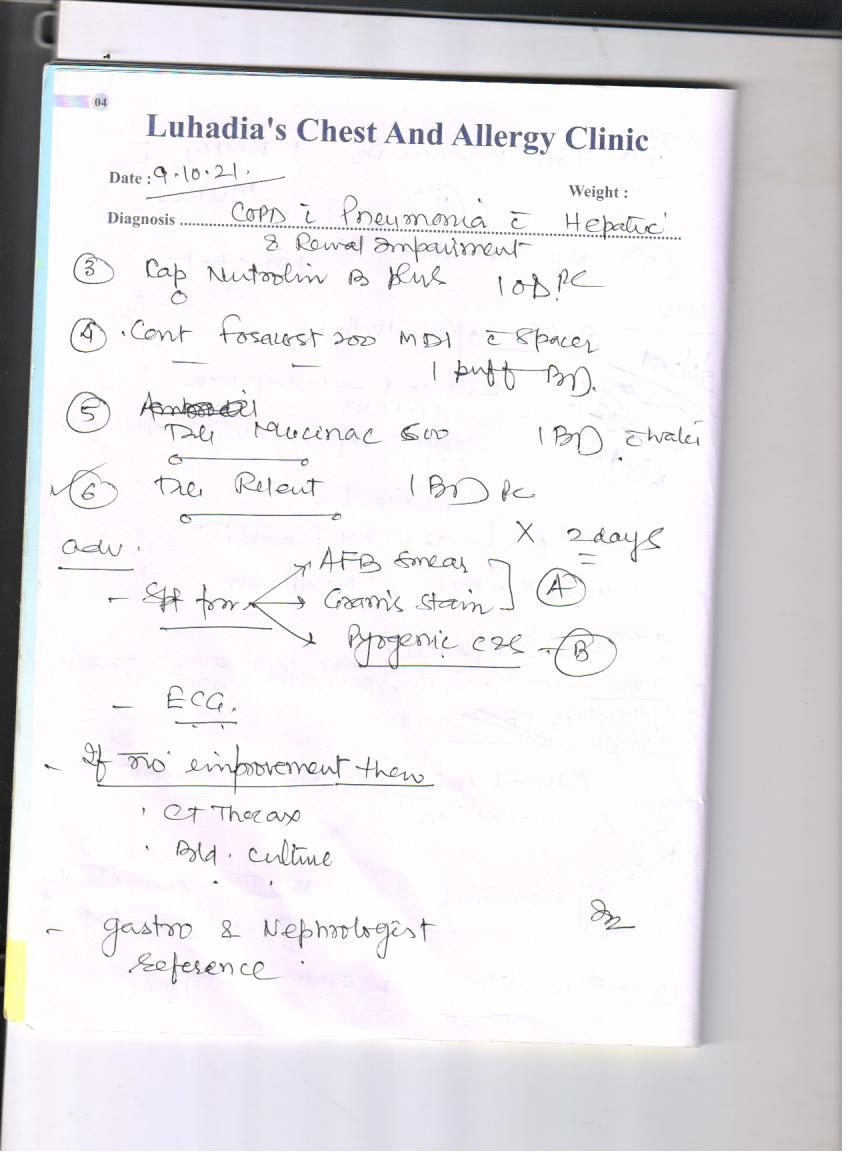 04
Luhadia's Chest And Allergy Clinic
Date : 9.10.21.
Weight :
Diagnosis .......... COPD c̄ Pneumonia c̄ Hepatic
& Renal Impairment
③ Cap Nutrolin B plus 1 OD PC
④ Cont Foracort 200 MDI c̄ Spacer
1 puff BD.
⑤
Mucinac 600 1 BD c̄ water
⑥ Relent 1 BD PC
X 2 days
adv.
- for AFB Smear
Gram's stain A
Pyogenic c2s - B
- ECG.
- If no improvement then
. CT Thorax
. Bld. culture
- gastro & Nephrologist
reference